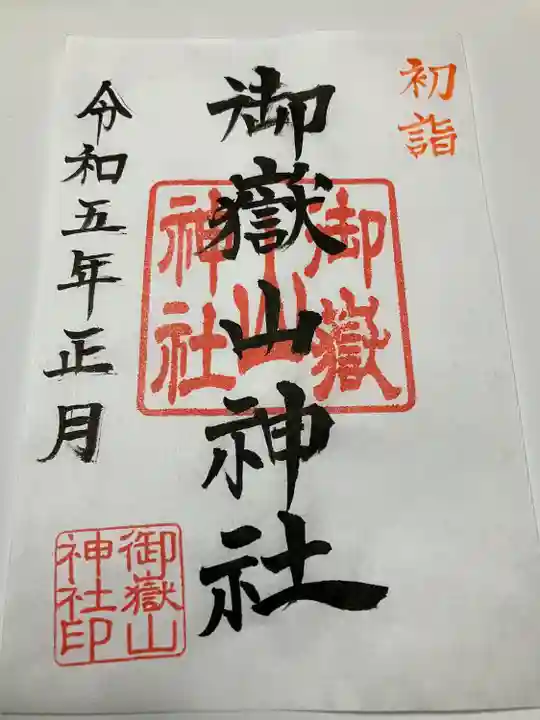 初詣
御嶽山神社
御嶽
山
神社
令和五年正月
御嶽山
神社印